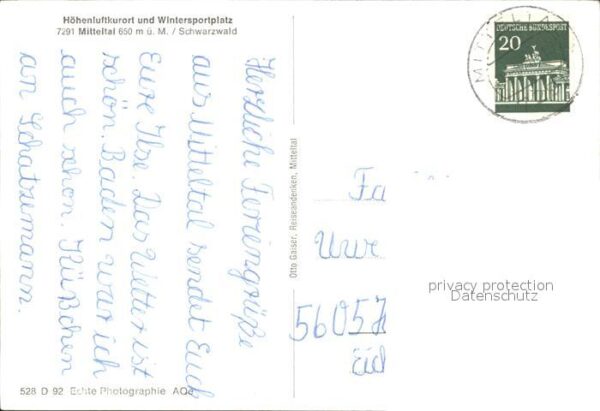 Höhenluftkurort und Wintersportplatz
7291 Mitteltal 650 m ü. M. / Schwarzwald
Herzliche Feriengrüße
aus Mitteltal sendet Euch
Eure Ilse. Das Wetter ist
schön. Baden war ich
auch schon. Küßchen
an Schatzemann.
528 D 92 Echte Photographie
Otto Gaiser, Reiseandenken, Mitteltal
DEUTSCHE BUNDESPOST
20
MITTELTAL
Fa
Uwe
5605
privacy protection
Datenschutz